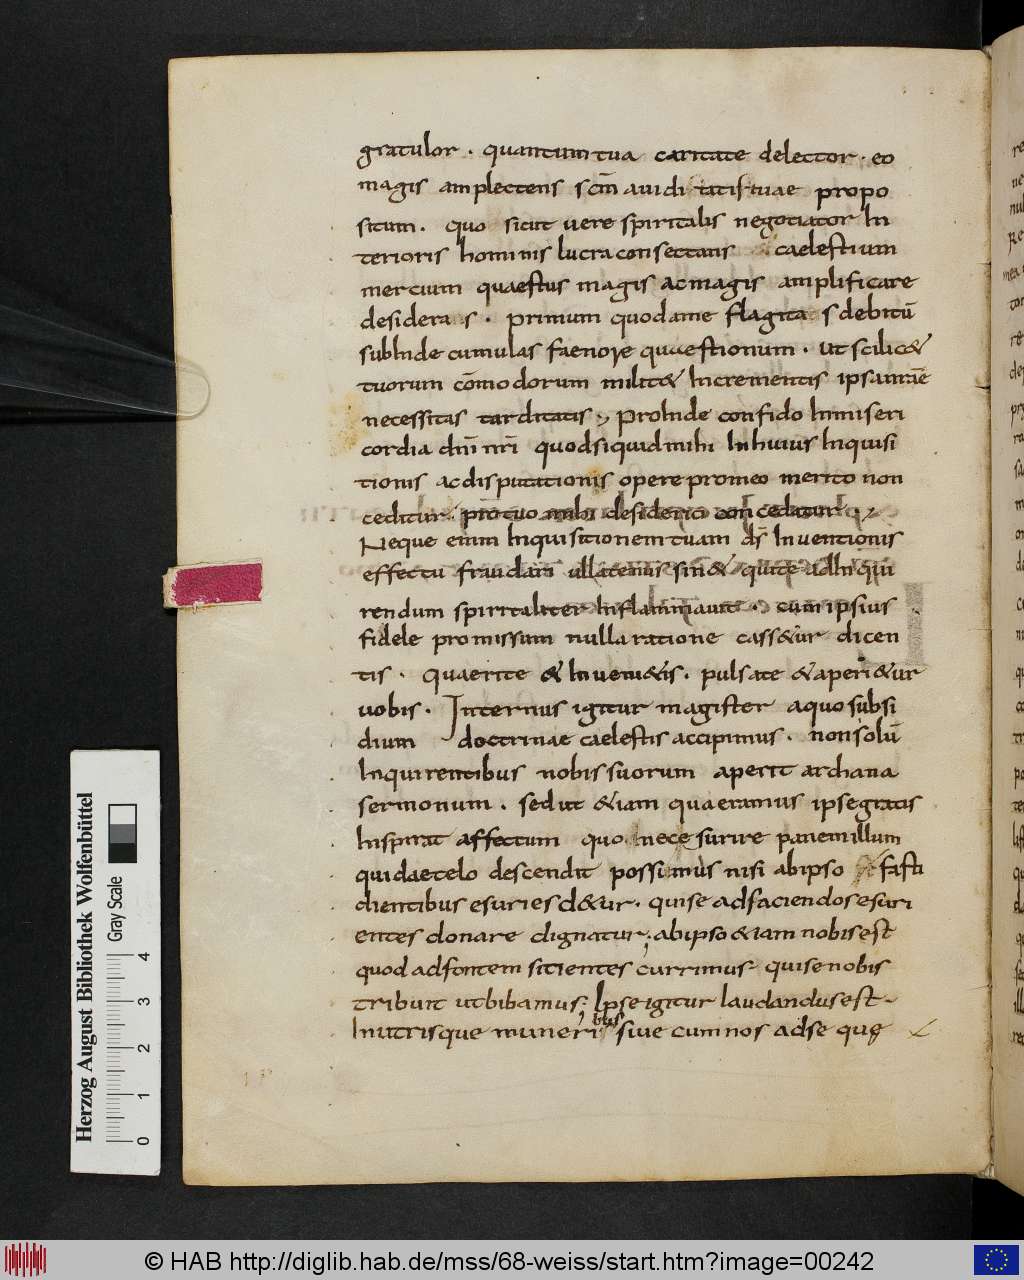 gratulor · quantum tua caritate delector · eo
magis amplectens scm̄ auiditatis tuae propo
situm · quo sicut uere spiritalis negotiator In
terioris hominis lucra consectans caelestium
mercium quaestus magis ac magis amplificare
desideras · primum quod a me flagitas debitū
subInde cumulas faenore quaestionum · ut scilic&
tuorum cōmodorum milit& Incrementis ipsa meę
necessitas tarditatis ; proInde confido In miseri
cordia dn̄i nr̄i quod si quid mihi In huius Inquisi
tionis ac disputationis opere pro meo merito non
ceditur pro tuo mihi desiderio concedatur ;
Neque enim Inquisitionem tuam ds̄ Inuentionis
effectu fraudari ullatenus sin& qui te ad Inqui
rendum spiritaliter Inflammauit · cum ipsius
fidele promissum nulla ratione cass&ur dicen
tis · Quaerite & Inueni&is · pulsate & aperi&ur
uobis · Internus igitur magister a quo subsi
dium doctrinae caelestis accipimus · non solū
Inquirentibus nobis suorum aperit archana
sermonum · sed ut &iam quaeramus ipse gratis
Inspirat affectum quo nec esurire panem illum
qui dae caelo descendit possumus nisi ab ipso fasti
dientibus esuries d&ur · qui se ad faciendos esuri
entes donare dignatur ; ab ipso &iam nobis est
quod ad fontem sitientes currimus qui se nobis
tribuit ut bibamus ; Ipse igitur laudandus est ·
In utrisque muneribus siue cum nos ad se quę
Herzog August Bibliothek Wolfenbüttel
Gray Scale
0 1 2 3 4
© HAB http://diglib.hab.de/mss/68-weiss/start.htm?image=00242